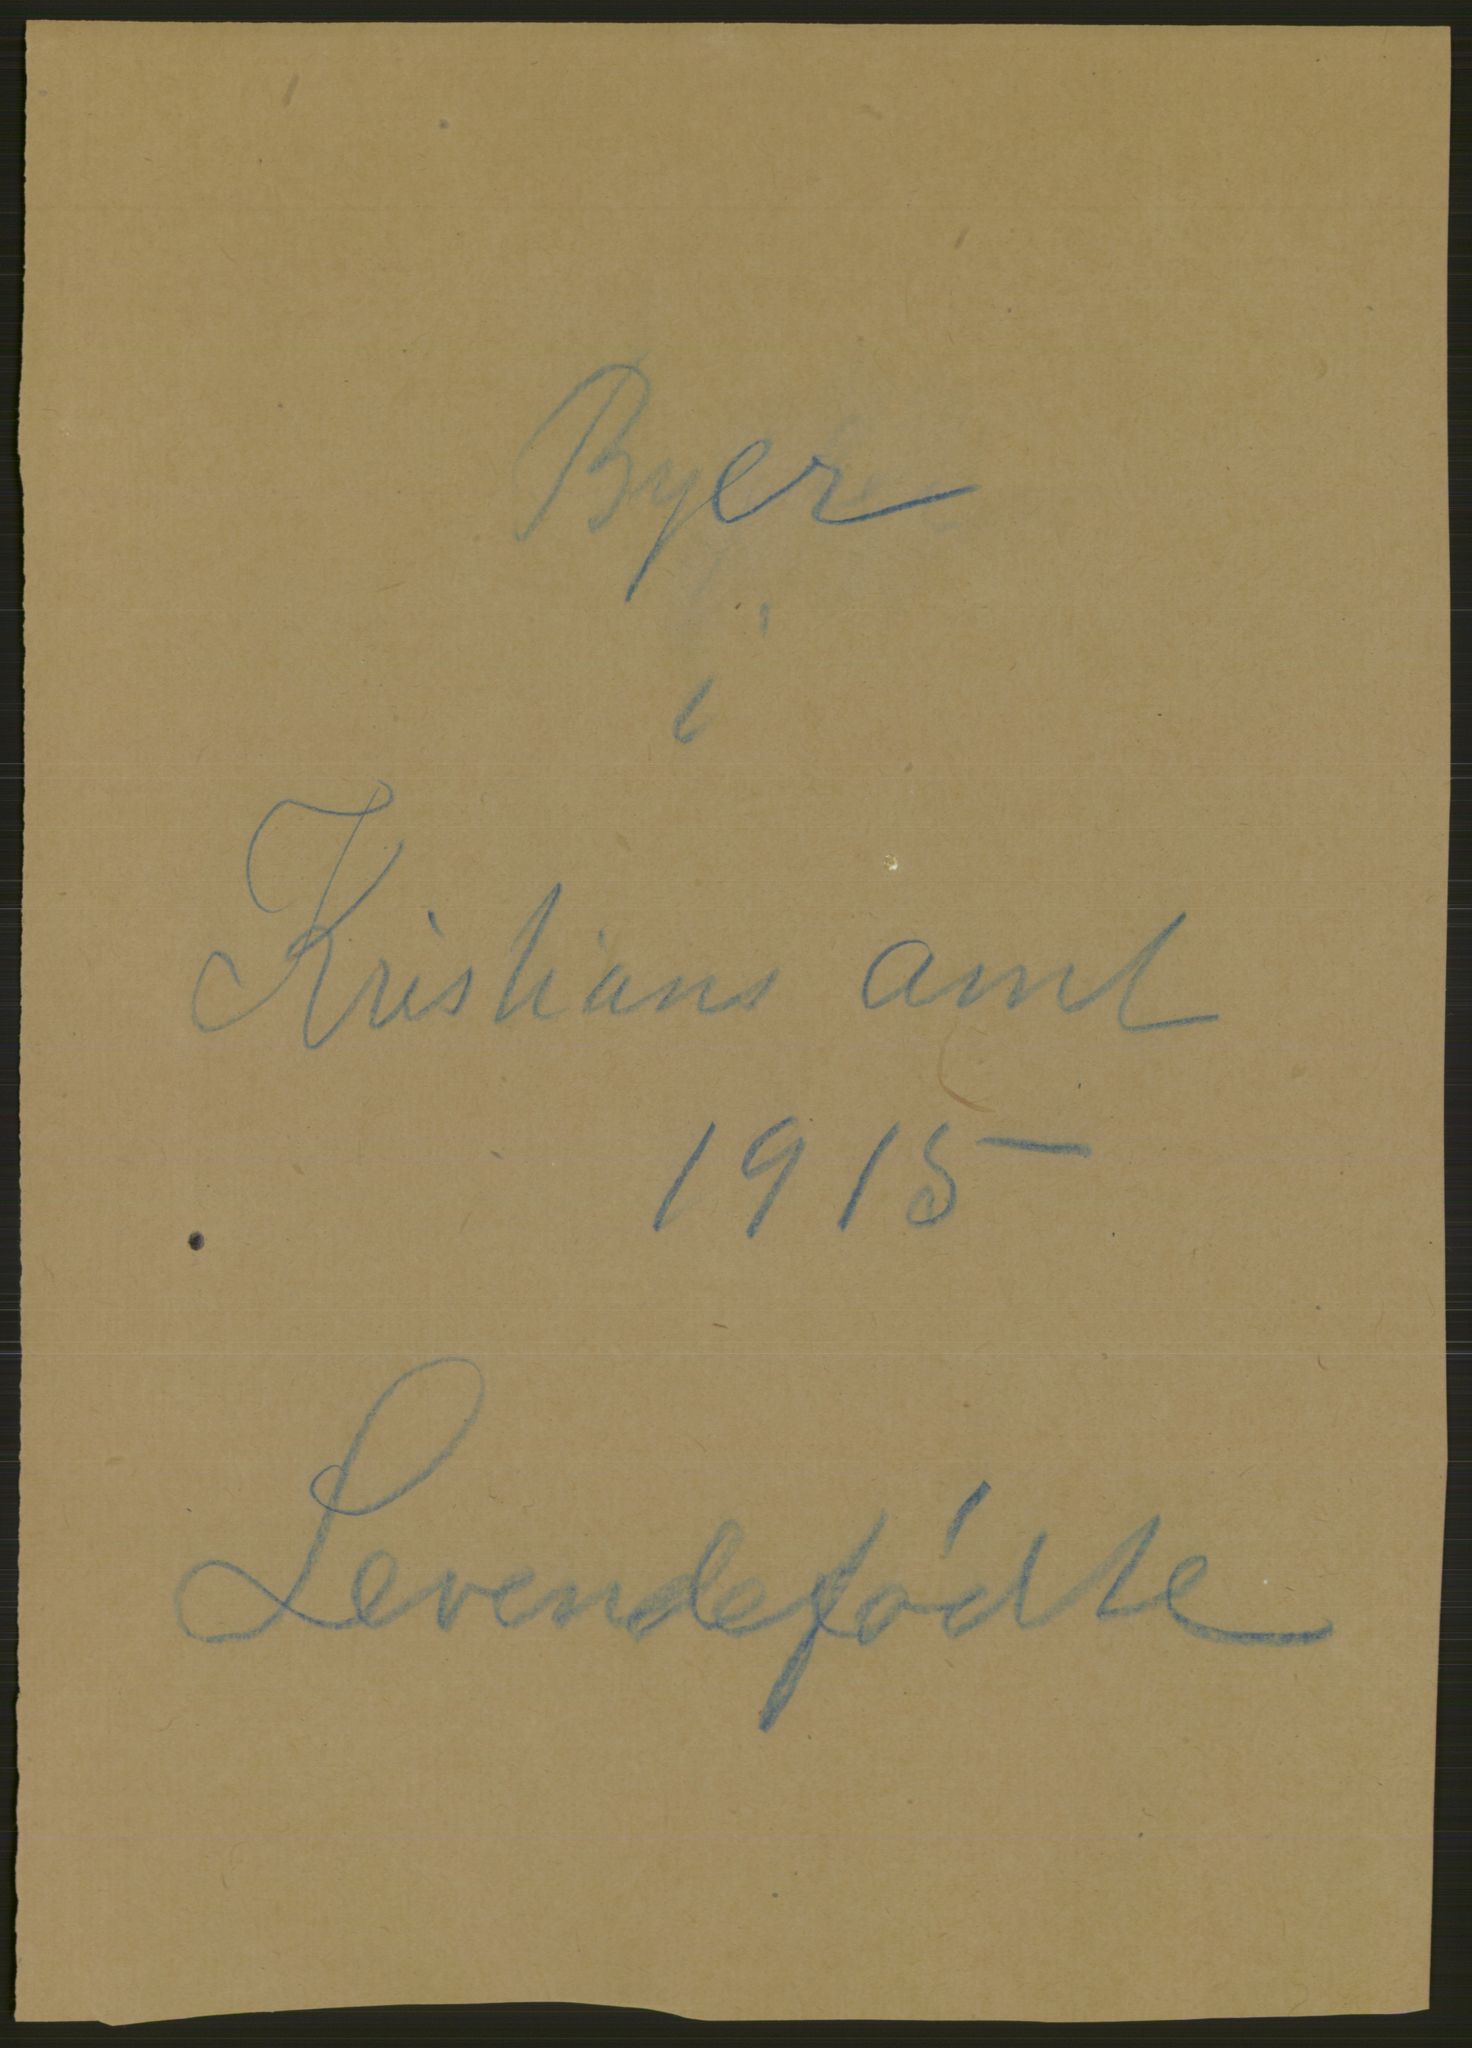 Byer
i
Kristians amt
1915
Levendefødte